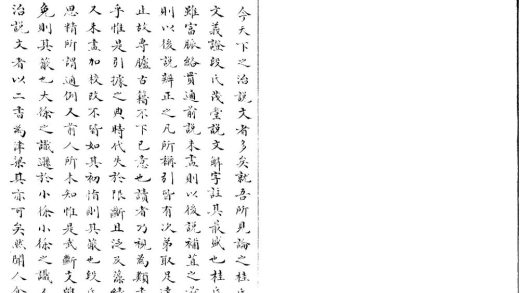 今天下之治說文者多矣就吾所見論之桂氏
文義證段氏茂堂說文解字註其最盛也桂氏
雖富脈絡貫通前說未盡則以後說補苴之
則以後說辨正之凡所稱引皆有次弟取足達
止故專臚古籍不下己意也讀者乃視為類書
乎惟是引據之典時代失於限斷且泛及藻繢
又未盡加校改不皆如其初恉則其蔽也段氏
思精所謂通例又前人所未知惟是武斷支離
免則其蔽也大徐之識遜於小徐小徐之識
治說文者以二書為津梁其亦可矣然聞人